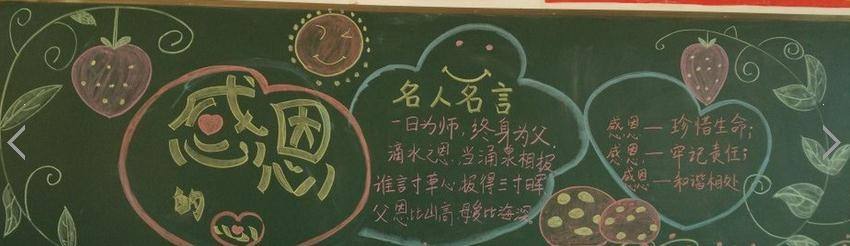 感恩
的
心
名人名言
一日为师，终身为父
滴水之恩，当涌泉相报
谁言寸草心，报得三寸晖
父恩比山高，母爱比海深
感恩—珍惜生命；
感恩—牢记责任；
感恩—和谐相处